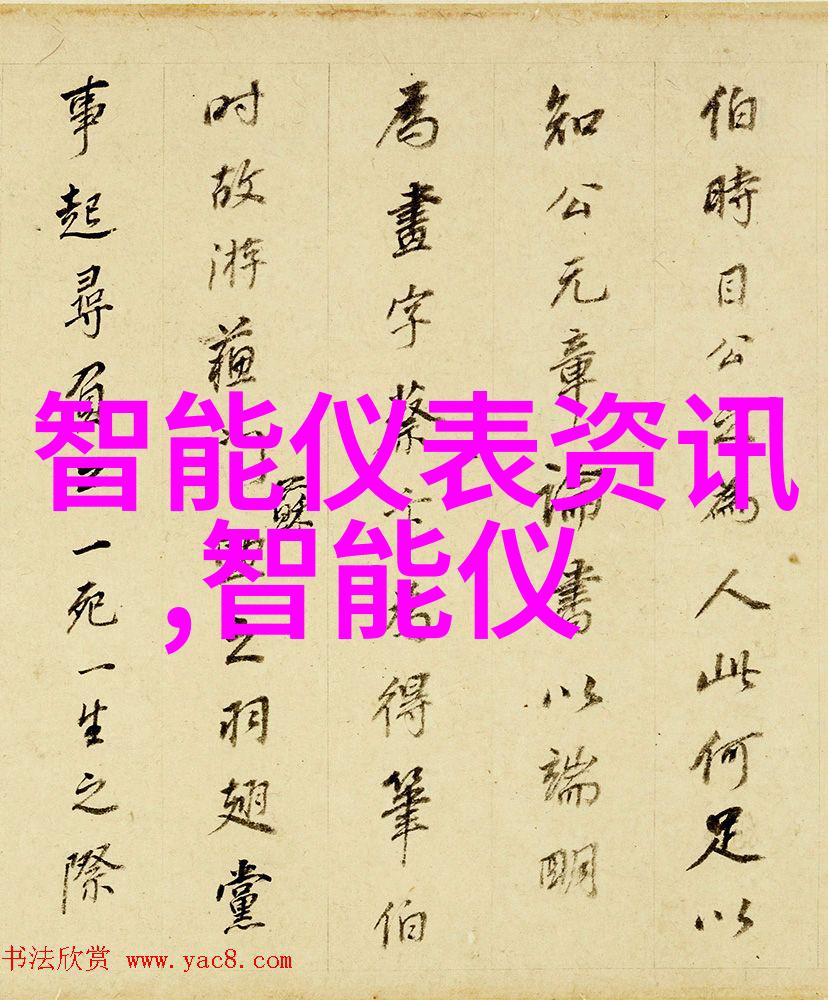 伯時目公為人此何足以
知公元章論書以端明
為畫字蔡為得筆伯
时故游蘓蘇之羽翅黨
事起尋負一死一生之際
智能仪表资讯
,智能仪
书法欣赏 www.yac8.com